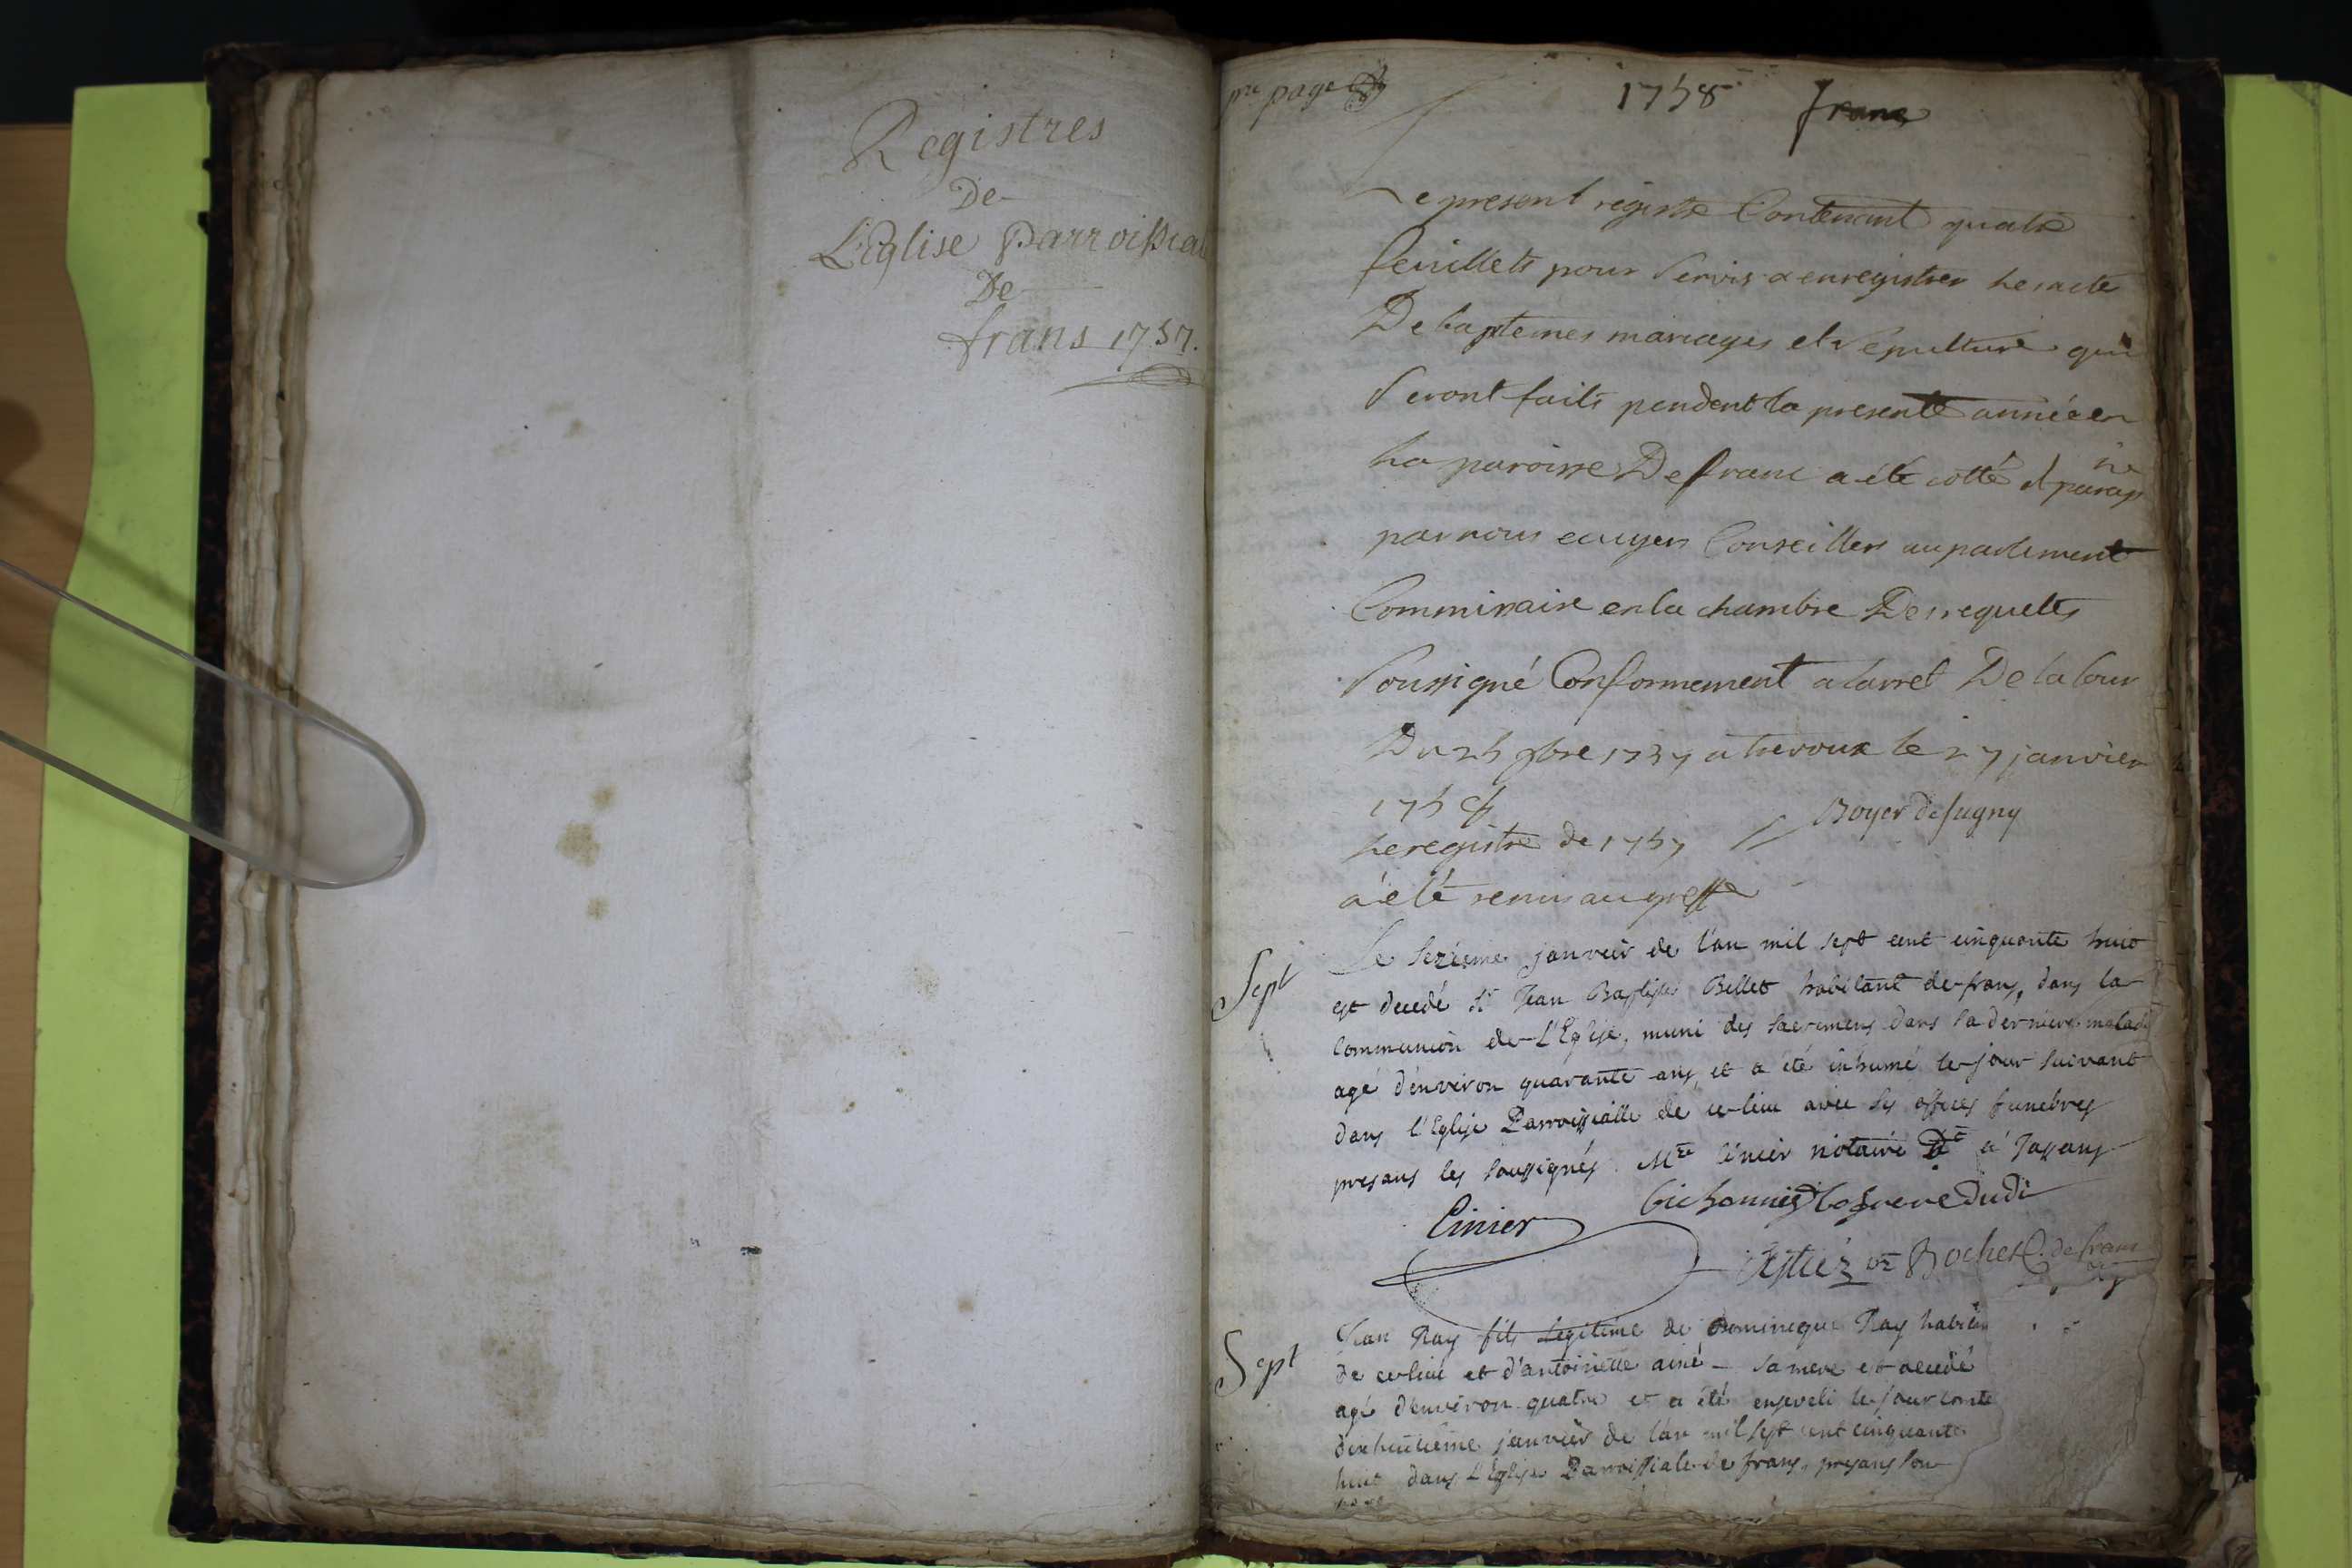 Registres
De
L'Eglise Parroissial
De
frans 1757.
pre page
1758 franc
Le present registre Contenant quatre
feuillets pour servir a enregistrer les acte
De baptemes mariages et sepulture qui
seront faits pendent la presente année en
la paroisse De franc a été cotté et paraphé
par nous ecuyer Conseiller au parlement
Commissaire en la chambre Des requetes
soussigné Conformement a larret De la Cour
Du 25 9bre 1737 a trevoux le 27 janvier
1758
Boyer de Sugny
le registre de 1757
a été remis au greffe
Sept
Le sezième janvier de l'an mil sept cent cinquante huit
est decedé sr Jean Baptiste Bellet habitant de frans, dans la
communion de L'Eglise, muni des sacremens dans sa derniere maladi
agé d'environ quarante ans, et a été inhumé le jour suivant
dans l'Eglise Parroissialle de ce lieu avec les offices funebres
presans les soussignés Mre Cinier notaire Dt a Jassans
Cinier
de frans
Sept
Jean Ray fils legitime de Dominique Ray habitan
de ce lieu et d'antoinette ainé sa mere est decedé
agé d'environ quatre et a été enseveli le jour
dixhuitième janvier de l'an mil sept cent cinquante
huit dans L'Eglise Parroissiale de frans, presans